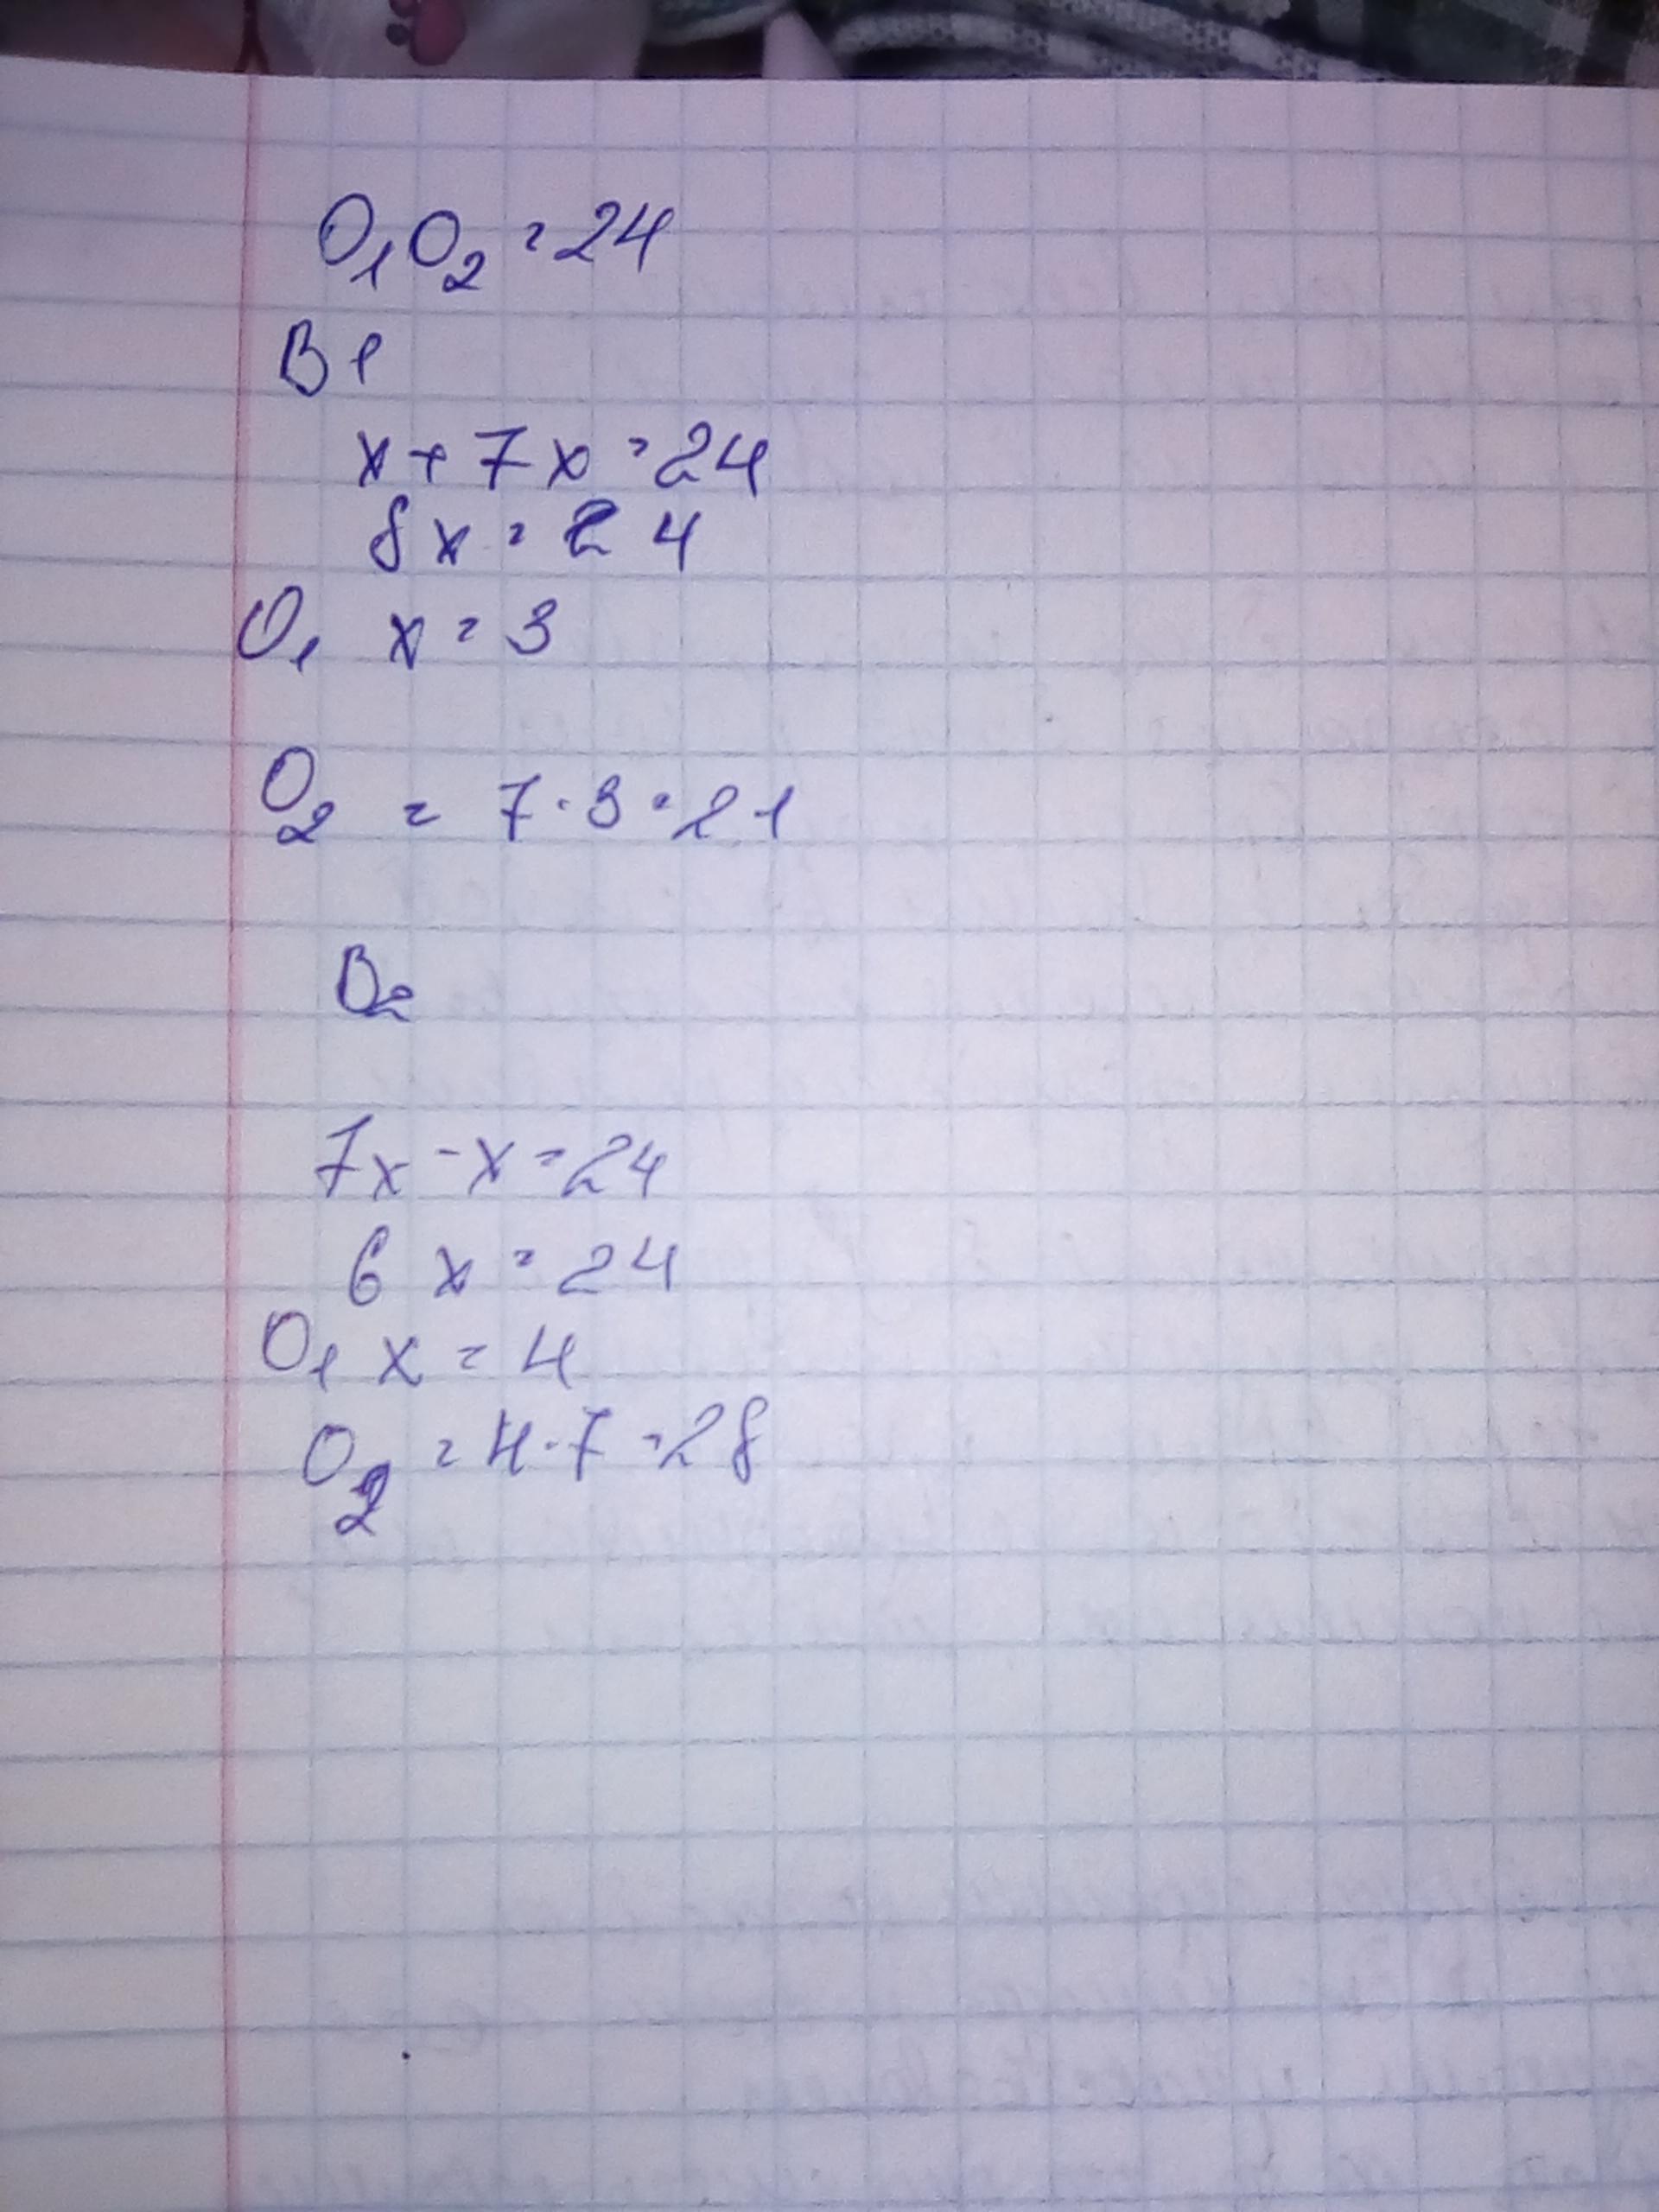 O₁O₂ = 24
B1
x + 7x = 24
8x = 24
O₁ x = 3
O₂ = 7 · 3 = 21
B₂
7x - x = 24
6x = 24
O₁ x = 4
O₂ = 4 · 7 = 28